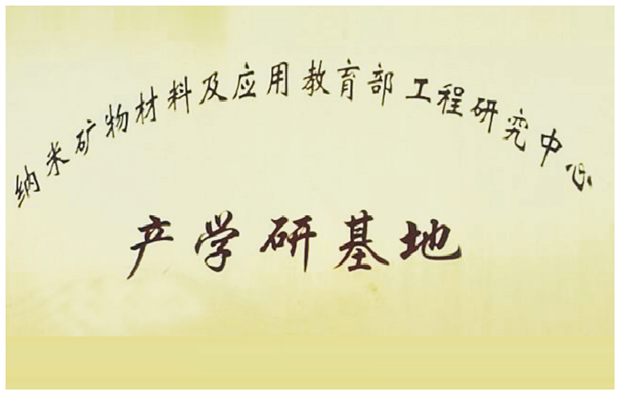 纳米矿物材料及应用教育部工程研究中心
产学研基地